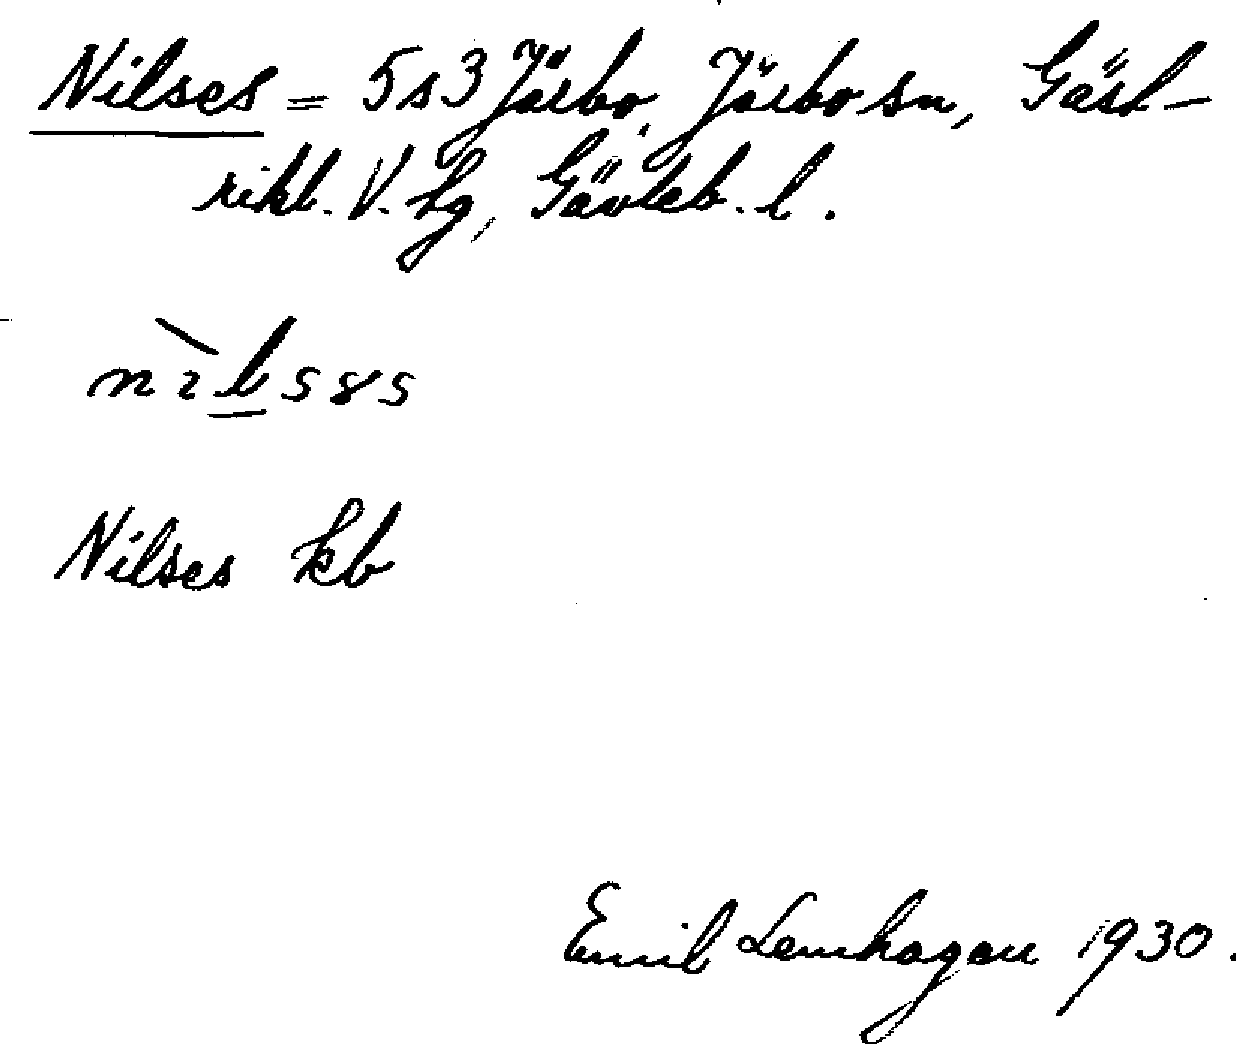 Nilses = 5s3 Järbo, Järbo sn, Gäst-
rikl. V. hg, Gävleb. l.
nìlsəs
Nilses kb
Emil Lemhagen 1930.